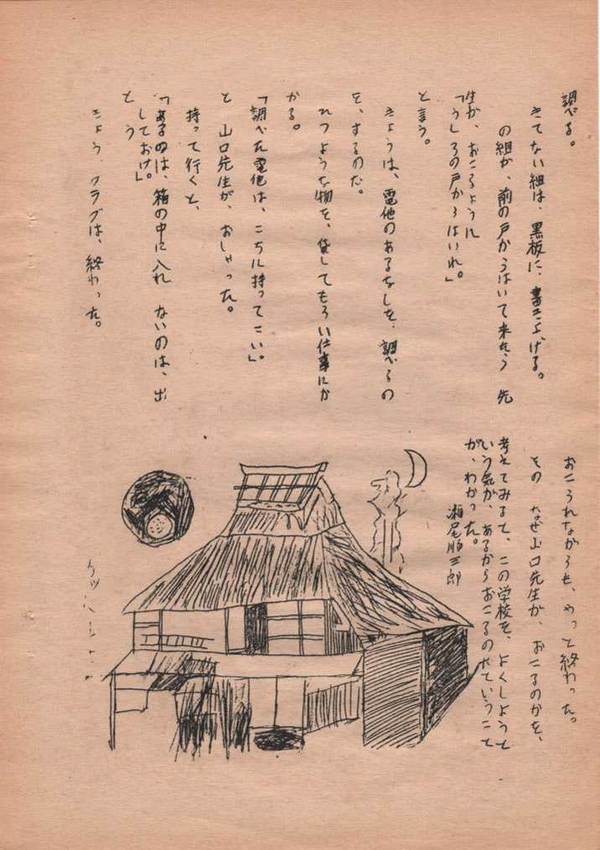 調べる。
きてない組は、黒板に、書き上げる。
の組が、前の戸からはいて来たら 先
生が、おこるように
「うしろの戸からはいれ。」
と言う。
きょうは、電池のあるなしを、調べるの
を、するのだ。
れつような物を、貸してもらい仕事にか
かる。
「調べた電池は、こちに持ってこい」。
と 山口先生が、おしゃった。
持って行くと、
「あるのは、箱の中に入れ ないのは、出
しておけ」。
とう
きょう、クラブは、終わった。
おこられながらも、やっと終わった。
その なぜ山口先生が、おこるのかを、
考えてみると、この学校を、よくしようと
いう気が、あるからおこるのだということ
が、わかった。
瀬尾